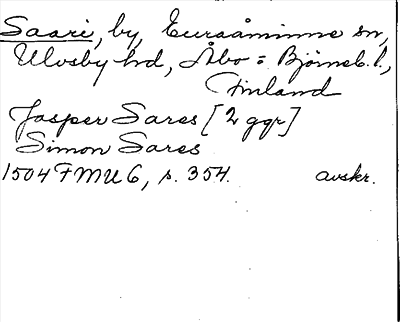 Saari, by, Euraåminne sn,
Ulvsby hd, Åbo = Björneb. l.,
Finland
Jasper Sares [2 ggr]
Simon Sares
1504 FMU 6, s. 354. avskr.